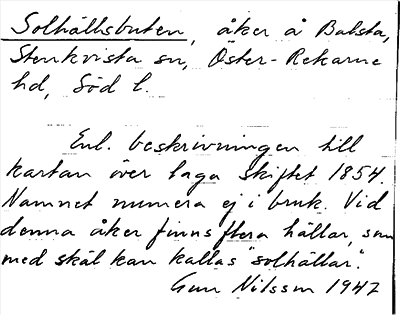 Solhällsbuten, åker å Balsta,
Stenkvista sn, Öster-Rekarne
hd, Söd l.
Enl. beskrivningen till
kartan över laga skiftet 1854.
Namnet numera ej i bruk. Vid
denna åker finns flera hällar, som
med skäl kan kallas "solhällar".
Gun Nilsson 1947